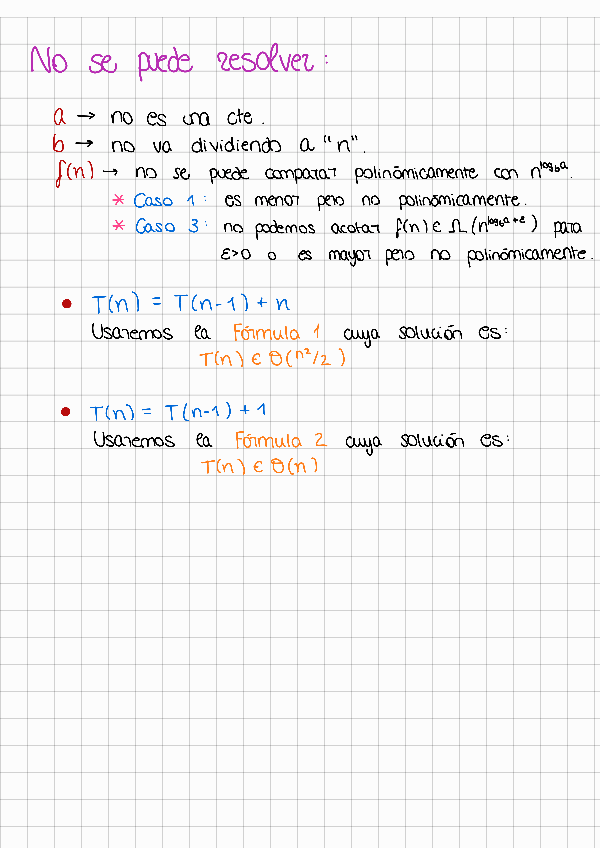 No se puede resolver:
a → no es una cte.
b → no va dividiendo a "n".
f(n) → no se puede comparar polinómicamente con n^log_b a.
* Caso 1: es menor pero no polinómicamente.
* Caso 3: no podemos acotar f(n) ∈ Ω(n^log_b a + ε) para
ε>0 o es mayor pero no polinómicamente.
• T(n) = T(n-1) + n
Usaremos la Fórmula 1 cuya solución es:
T(n) ∈ Θ(n²/2)
• T(n) = T(n-1) + 1
Usaremos la Fórmula 2 cuya solución es:
T(n) ∈ Θ(n)